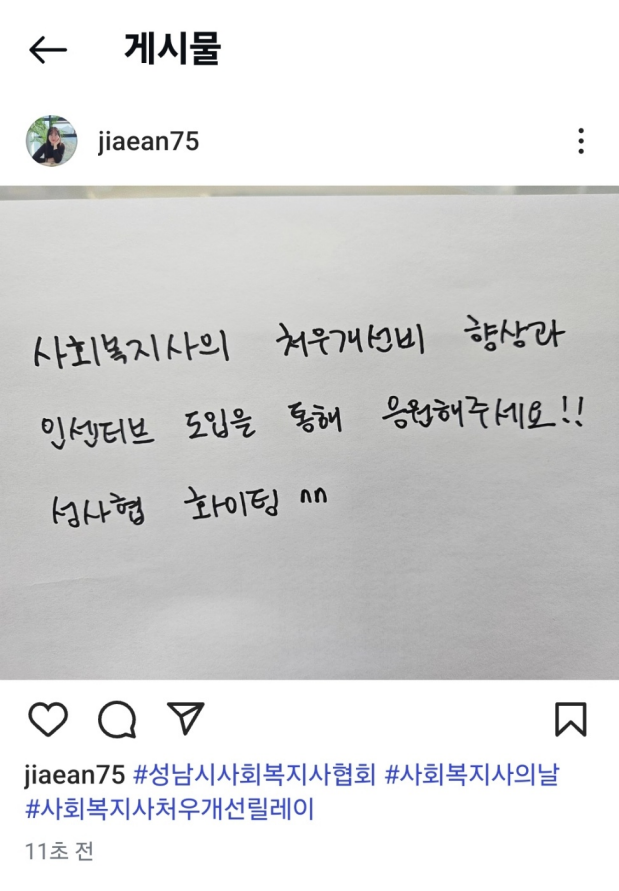 게시물
jiaean75
사회복지사의 처우개선비 향상과
인센터브 도입을 통해 응원해주세요!!
성사협 화이팅 ^^
jiaean75 #성남시사회복지사협회 #사회복지사의날
#사회복지사처우개선릴레이
11초 전